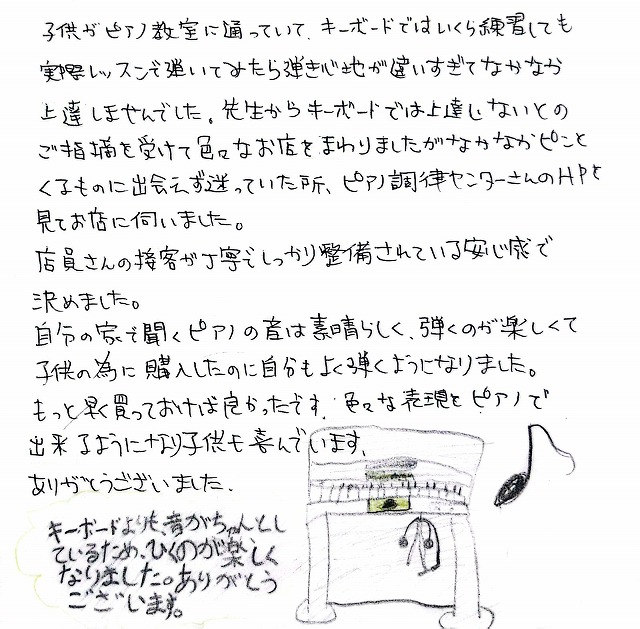 子供がピアノ教室に通っていて、キーボードではいくら練習しても
実際レッスンで弾いてみたら弾き心地が違いすぎてなかなか
上達しませんでした。先生からキーボードでは上達しないとの
ご指摘を受けて色々なお店をまわりましたがなかなかピンと
くるものに出会えず迷っていた所、ピアノ調律センターさんのHPを
見てお店に伺いました。
店員さんの接客が丁寧でしっかり整備されている安心感で
決めました。
自分の家で聞くピアノの音は素晴らしく、弾くのが楽しくて
子供の為に購入したのに自分もよく弾くようになりました。
もっと早く買っておけば良かったです。色々な表現をピアノで
出来るようになり子供も喜んでいます。
ありがとうございました。
キーボードよりも、音がちゃんとし
ているため、ひくのが楽しく
なりました。ありがとう
ございます。